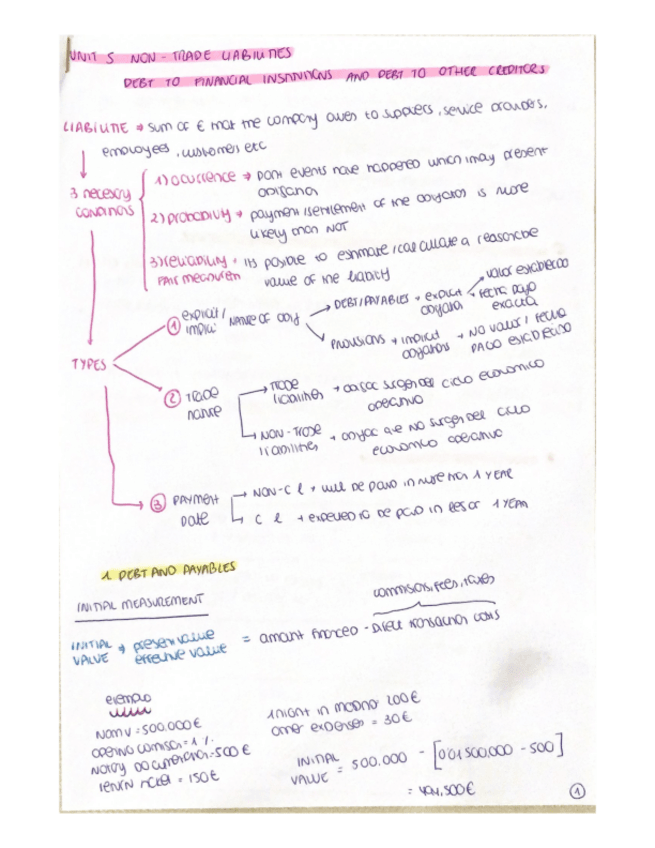 UNIT 5 NON-TRADE LIABILITIES
DEBT TO FINANCIAL INSTITUTIONS AND DEBT TO OTHER CREDITORS
LIABILITIE → sum of € that the company owes to suppliers, service providers,
employees, customers etc
3 necessary conditions
1) ocurrence → past events have happened which may present
obligation
2) probability → payment/settlement of the obligation is more
likely than NOT
3) reliability • its posible to estimate/calculate a reasonable
value of the liability
FAIR measurem
TYPES
① explicit/
implic. NATURE OF oblig
→ DEBT/PAYABLES → explicit obligation
→ valor establecido
→ fecha pago exacta
PROVISIONS → implicit obligations → NO valor/fecha
PAGO ESTABLECIDO
② TRADE nature
→ TRADE liabilities → obligac surgen del ciclo economico
operativo
→ NON-TRADE liabilities → obligac que NO surgen del ciclo
economico operativo
③ PAYMENT DATE
→ NON-C l → will be paid in more than 1 YEAR
→ C l → expected to be paid in less than 1 YEAR
1. DEBT AND PAYABLES
INITIAL MEASUREMENT
commissions, fees, taxes
INITIAL VALUE → present value
effective value
= amount financed - Direct transaction costs
ejemplo
Nom v = 500.000€
opening comission = 1%
Notary documentation = 500€
= 150€
1 night in Madrid 200€
other expenses = 30€
INITIAL VALUE = 500.000 - [0'01·500.000 - 500]
= 494.500€
1